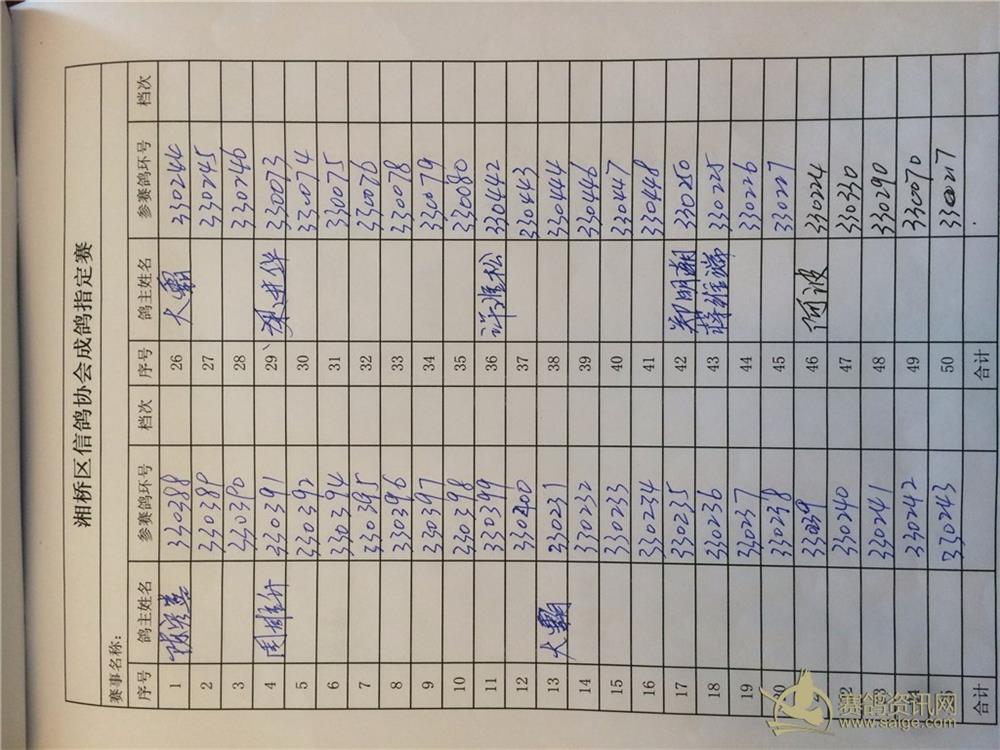 湘桥区信鸽协会成鸽指定赛
赛事名称：
序号 鸽主姓名 参赛鸽环号 档次 序号 鸽主姓名 参赛鸽环号 档次
1 330388 26 大霸 330244
2 330389 27 330245
3 330390 28 330246
4 330391 29 330073
5 330392 30 330074
6 330394 31 330075
7 330395 32 330076
8 330396 33 330078
9 330397 34 330079
10 330398 35 330080
11 330399 36 许准松 330442
12 330400 37 330443
13 大霸 330231 38 330444
14 330232 39 330446
15 330233 40 330447
16 330234 41 330448
17 330235 42 郑明湖 330250
18 330236 43 330225
19 330237 44 330226
20 330238 45 330227
330239 46 阿波 330224
330240 47 330330
330241 48 330290
330242 49 330070
330243 50 330027
合计 合计
赛鸽资讯网
www.saige.com